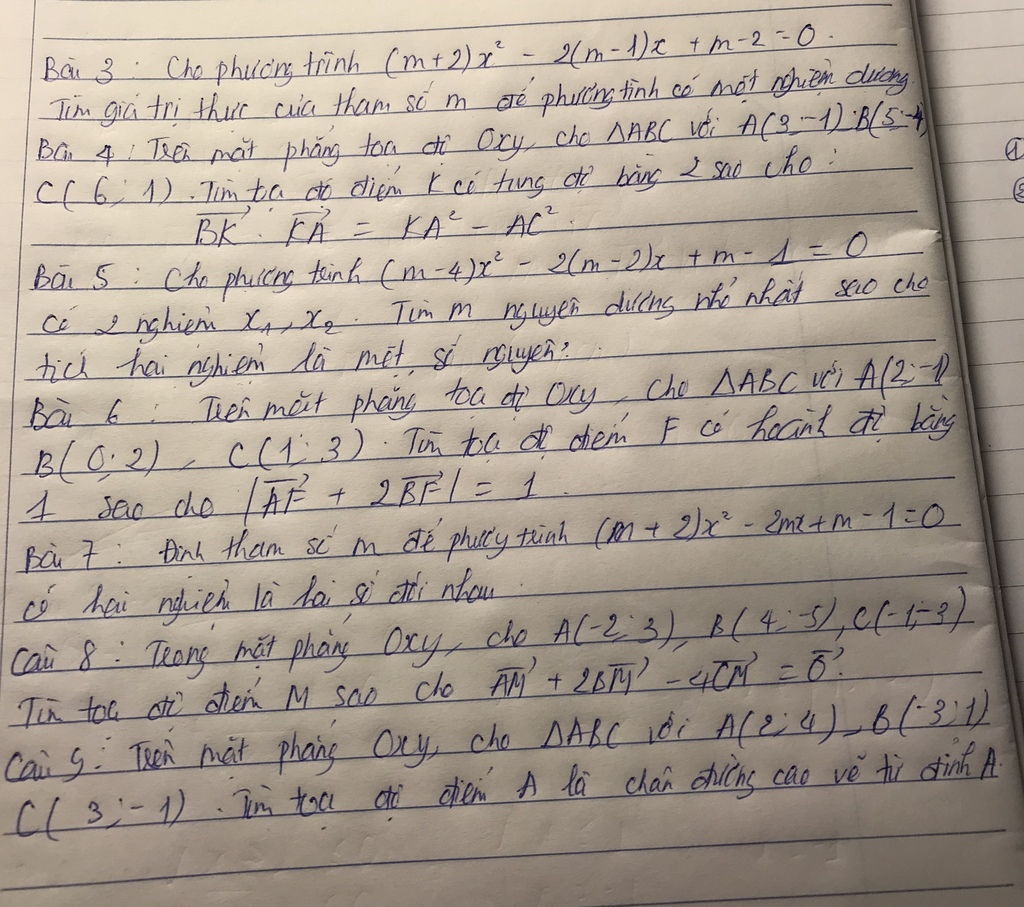 Bài 3 : Cho phương trình (m+2)x² - 2(m-1)x + m-2=0.
Tìm giá trị thực của tham số m để phương tình có một nghiệm dương
Bài 4 : Trên mặt phẳng tọa độ Oxy, cho ΔABC với A(3;-1);B(5;-4)
C(6;1). Tìm tọa độ điểm K có tung độ bằng 2 sao cho :
BK⃗ . KA⃗ = KA² - AC².
Bài 5 : Cho phương trình (m-4)x² - 2(m-2)x + m-1 = 0
có 2 nghiệm x₁, x₂. Tìm m nguyên dương nhỏ nhất sao cho
tích hai nghiệm là một số nguyên?
Bài 6 : Trên mặt phẳng tọa độ Oxy, cho ΔABC với A(2;-1)
B(0;2), C(1;3). Tìm tọa độ điểm F có hoành độ bằng
1 sao cho |AF⃗ + 2BF⃗| = 1.
Bài 7 : Định tham số m để phương trình (m+2)x² - 2mx+m-1=0
có hai nghiệm là hai số đối nhau.
Câu 8 : Trong mặt phẳng Oxy, cho A(-2;3), B(4;-5), C(-1;-3)
Tìm tọa độ điểm M sao cho AM⃗ + 2BM⃗ - 4CM⃗ = 0⃗.
Câu 9 : Trên mặt phẳng Oxy, cho ΔABC với A(2;4), B(-3;1)
C(3;-1). Tìm tọa độ điểm A là chân đường cao vẽ từ đỉnh A.
①
②